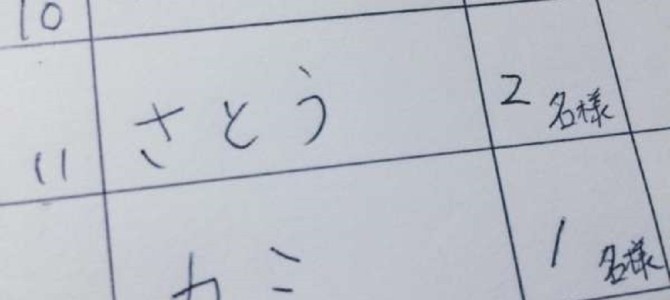 10
11 さとう 2 名様
1 名様